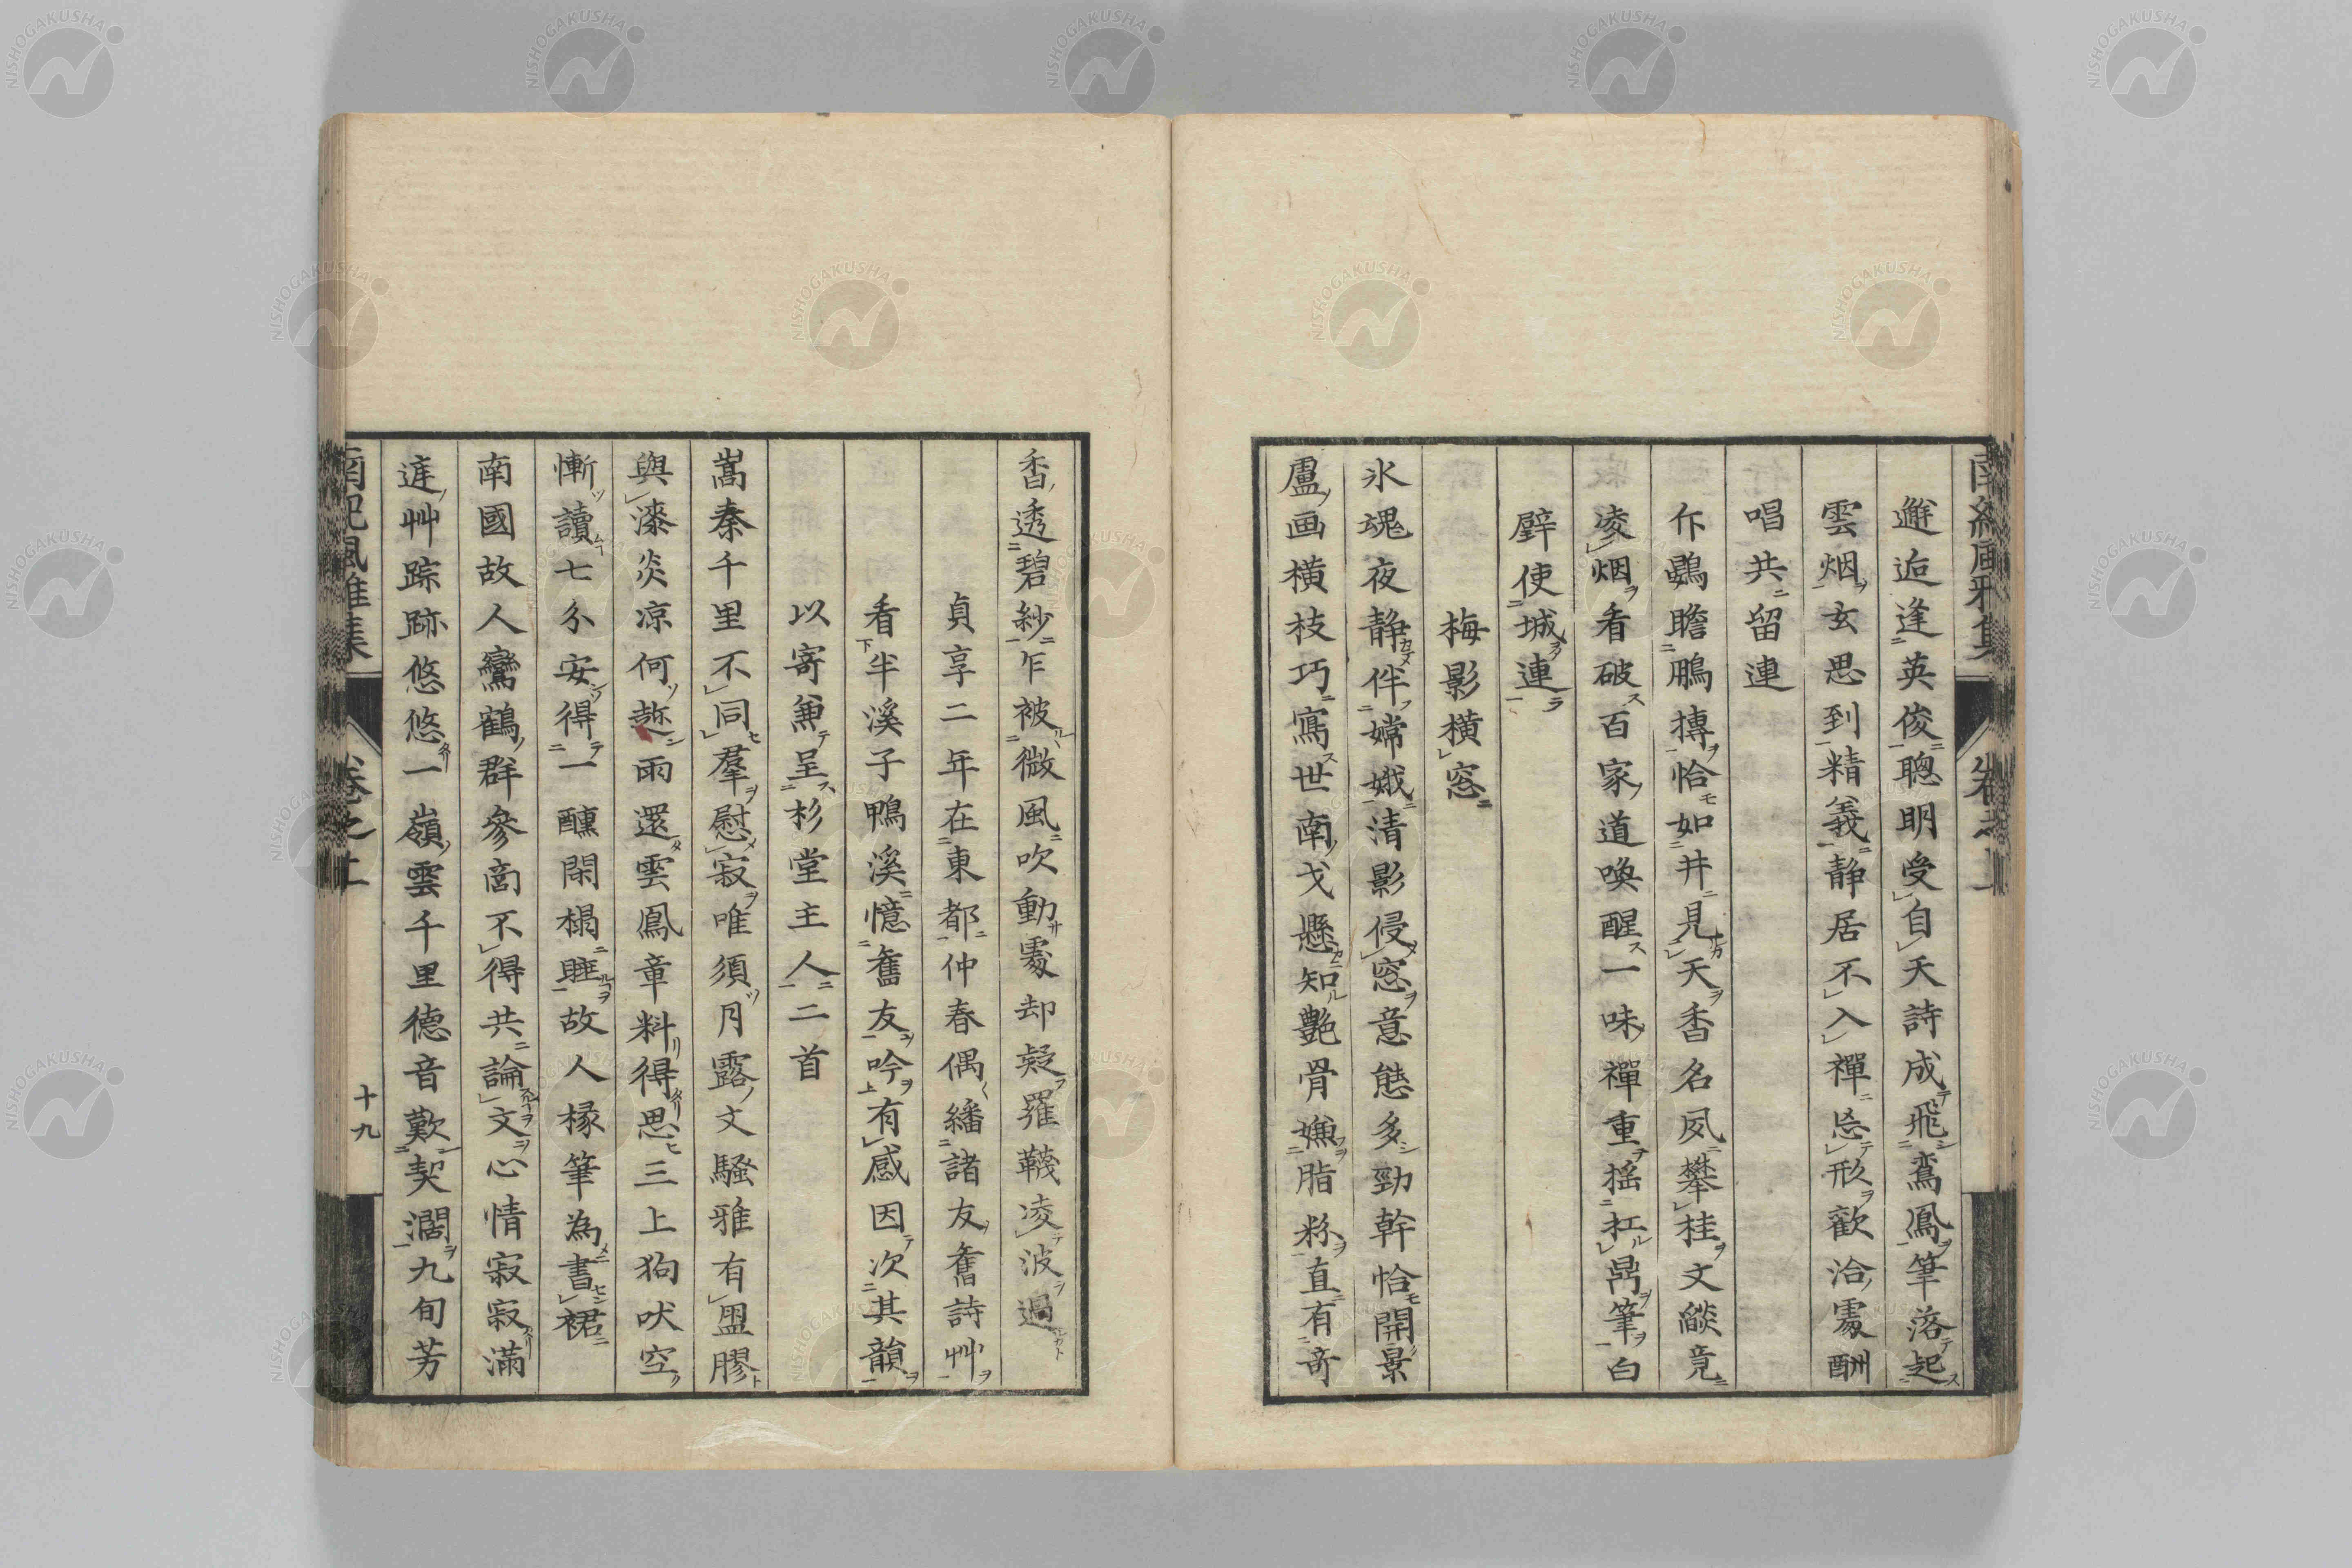 邂逅逢英俊聰明受自天詩成飛鸞鳳筆落起
雲烟玄思到精義静居不入禪忘形歡洽處酬
唱共留連
仆鷃瞻鵬摶恰如井見天香名夙攀桂文燄竟
凌烟看破百家道喚醒一味禪重揺杠鼎筆白
璧使城連
梅影横窓
氷魂夜静伴嫦娥清影侵窓意態多勁幹恰開景
盧画横枝巧寫世南戈懸知艶骨嫌脂粉直有奇
香透碧紗乍被微風吹動處却疑羅韈凌波過
貞享二年在東都仲春偶繙諸友舊詩艸
看半溪子鴨溪憶舊友吟有感因次其韻
以寄兼呈杉堂主人二首
嵩秦千里不同羣慰寂唯須月露文騷雅有盟膠
與漆炎凉何趂雨還雲鳳章料得思三上狗吠空
慚讀七分安得一醺閑榻睡故人椽筆為書裙
南國故人鸞鶴群參商不得共論文心情寂寂滿
庭艸踪跡悠悠一嶺雲千里德音歎契濶九旬芳
南紀風雅集 卷之上 十九
NISHOGAKUSHA